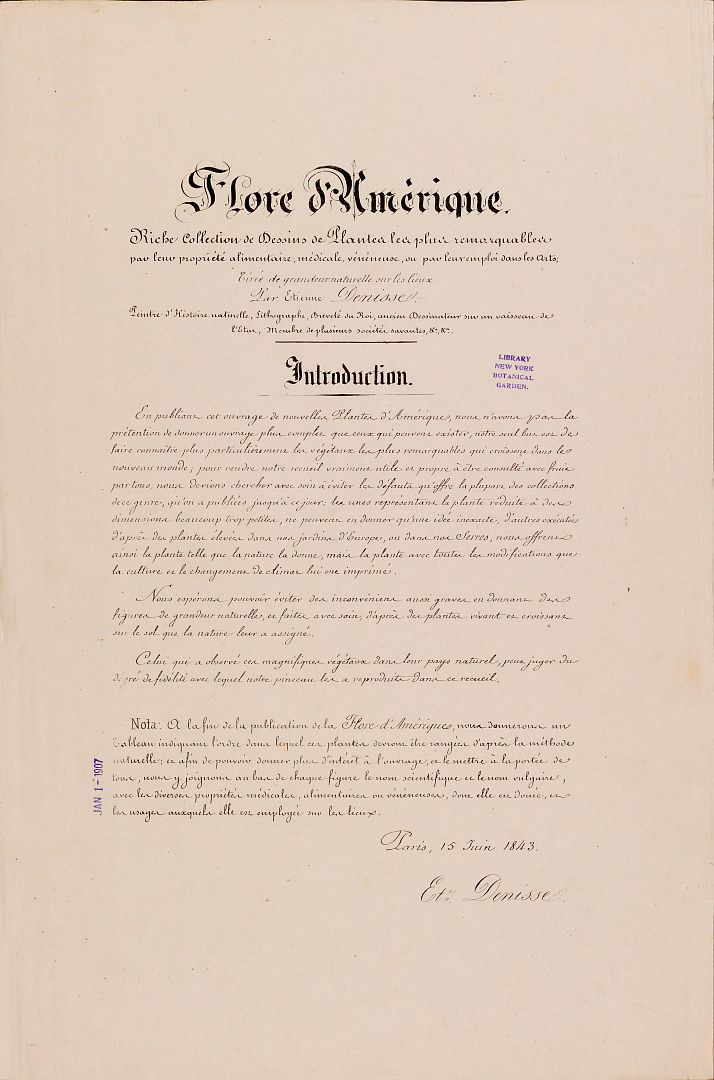 Flore d'Amérique.
Riche Collection de Dessins de Plantes les plus remarquables
par leur propriété alimentaire, médicale, vénéneuse, ou par leur emploi dans les Arts;
Tirée de grandeur naturelle sur les lieux
Par Etienne Denisse.
Peintre d'Histoire naturelle, Lithographe, Breveté du Roi, ancien Dessinateur sur un vaisseau de
l'Etat, Membre de plusieurs sociétés savantes, &c, &c.
Introduction.
LIBRARY
NEW YORK
BOTANICAL
GARDEN.
En publiant cet ouvrage de nouvelles Plantes d'Amérique, nous n'avons pas la
prétention de donner un ouvrage plus complet que ceux qui peuvent exister, notre seul but est de
faire connaître plus particulièrement les végétaux les plus remarquables qui croissent dans le
nouveau monde; pour rendre notre recueil vraiment utile et propre à être consulté avec fruit
par tous, nous devions chercher avec soin à éviter les défauts qu'offre la plupart des collections
de ce genre, qu'on a publiées jusqu'à ce jour; les unes représentant la plante réduite à des
dimensions beaucoup trop petites, ne peuvent en donner qu'une idée inexacte, d'autres exécutés
d'après des plantes élevées dans nos jardins d'Europe, ou dans nos Serres, nous offrent
ainsi la plante telle que la nature la donne, mais la plante avec toutes les modifications que
la culture et le changement de climat lui ont imprimé.
Nous espérons pouvoir éviter des inconvéniens aussi graves en donnant des
figures de grandeur naturelles, et faites avec soin, d'après des plantes vivant et croissant
sur le sol que la nature leur a assigné.
Celui qui a observé ces magnifiques végétaux dans leur pays naturel, peut juger du
degré de fidélité avec lequel notre pinceau les a reproduits dans ce recueil.
Nota: A la fin de la publication de la Flore d'Amériques, nous donnerons un
Tableau indiquant l'ordre dans lequel ces plantes devront être rangées d'après la méthode
naturelle; et afin de pouvoir donner plus d'intérêt à l'ouvrage, et le mettre à la portée de
tous, nous y joignons au bas de chaque figure le nom scientifique et le nom vulgaire,
avec les diverses propriétés médicales, alimentaires ou vénéneuses, dont elle est douée, et
les usages auxquels elle est employée sur les lieux.
JAN 1-1907
Paris, 15 Juin 1843.
Et.ne Denisse.